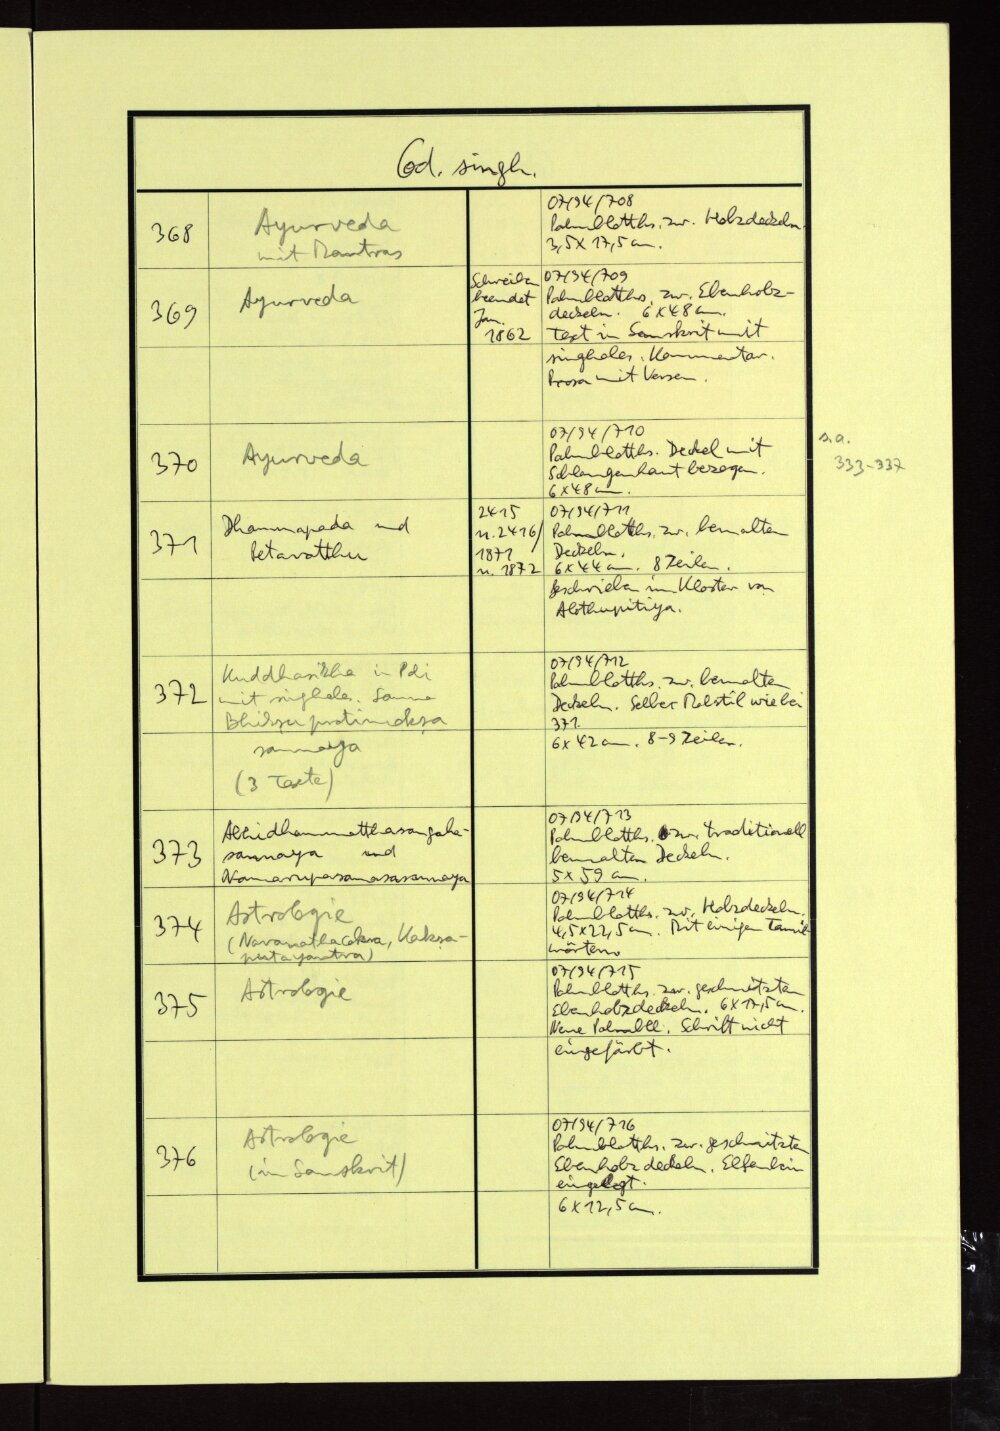 Cod. singh.
368
Ayurveda
mit Mantras
07/94/708
Palmblatths. zw. Holzdeckeln.
3,5x17,5 cm.
369
Ayurveda
Schreiben
beendet
Jan.
1862
07/94/709
Palmblatths. zw. Ebenholz-
deckeln. 6x48 cm.
Text in Sanskrit mit
singhales. Kommentar.
Prosa mit Versen.
370
Ayurveda
07/94/710
Palmblatths. Deckel mit
Schlangenhaut bezogen.
6x48 cm.
s.a.
333-337
371
Dhammapada und
Petavatthu
2415
u. 2416/
1871
u. 1872
07/94/711
Palmblatths. zw. bemalten
Deckeln.
6x44 cm. 8 Zeilen.
geschrieben im Kloster von
Alothupitiya.
372
Kuddhasikha in Pali
mit singhales. Sanna
Bhiksupratimoksa
sannaya
(3 Texte)
07/94/712
Palmblatths. zw. bemalten
Deckeln. Selber Malstil wie bei
371.
6x42 cm. 8-9 Zeilen.
373
Abhidhammatthasangaha-
sannaya und
Namarupasamasasannaya
07/94/713
Palmblatths. zw. traditionell
bemalten Deckeln.
5x59 cm.
374
Astrologie
(Navanathacakra, Kaksa-
putayantra)
07/94/714
Palmblatths. zw. Holzdeckeln.
4,5x22,5 cm. Mit einigen Tamil-
wörtern.
375
Astrologie
07/94/715
Palmblatths. zw. geschnitzten
Ebenholzdeckeln. 6x17,5 cm.
Neue Palmbll. Schrift nicht
eingefärbt.
376
Astrologie
(in Sanskrit)
07/94/716
Palmblatths. zw. geschnitzten
Ebenholzdeckeln. Elfenbein
eingelegt.
6x12,5 cm.